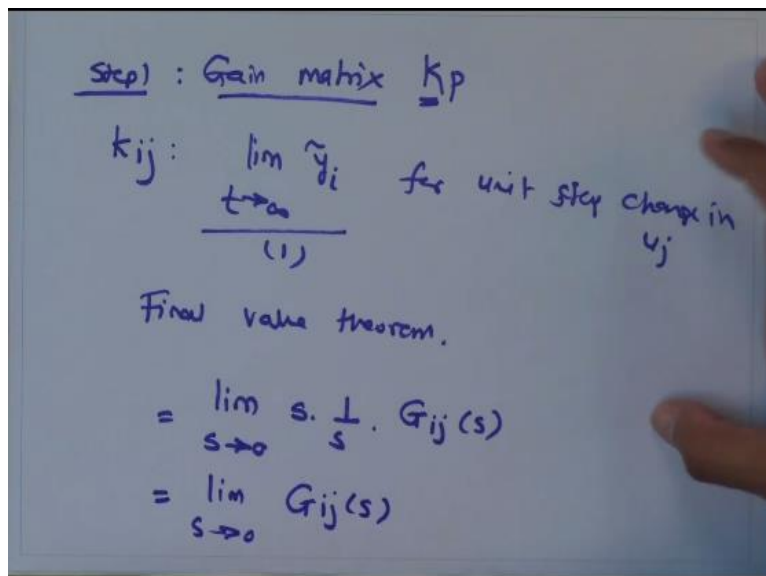 Step 1 : Gain matrix Kp
kij : lim ỹi for unit step change in uj
t→∞
(1)
Final value theorem.
= lim s. 1/s . Gij (s)
s→0
= lim Gij(s)
s→0